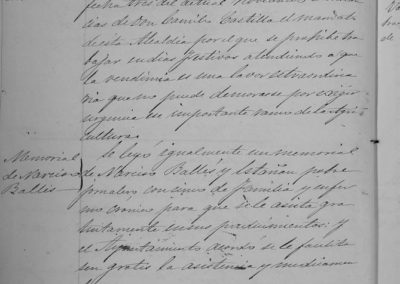 fecha tres del actual
cias de Don Camilo Castilla el mandato
de esta Alcaldia por el que se prohibe tra
bajar en dias festivos atendiendo a que
la vendimia es una labor estraordina
ria que no puede demorarse por exigir
urgencia su importante ramo de la Agri
cultura.
Se leyó igualmente un memorial
Memorial
de Narciso
Ballés
de Narciso Ballés y pobre
jornalero con cinco de familia y enfer
mo crónico para que se le asista gra
tuitamente en sus padecimientos; y
el Ayuntamiento acordó se le facilita
sen gratis la asistencia y medicamen